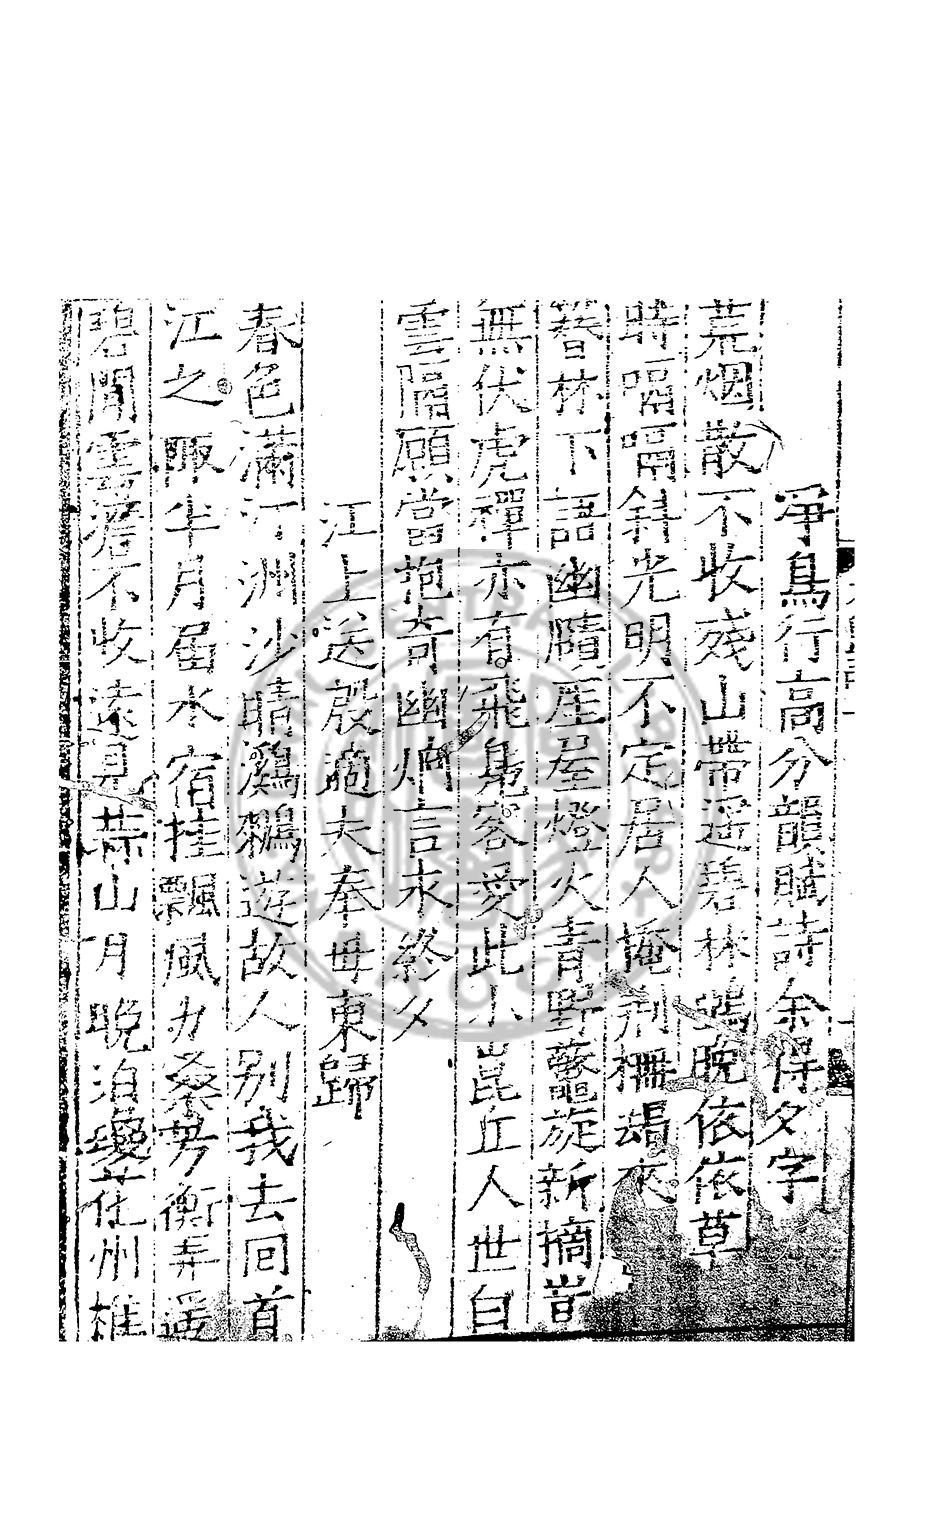 淨鳥行高分韻賦詩余得夕字
荒烟散不收殘山帶遥碧林鴉晩依依草
時嗝嗝斜光明不定居人掩荆柵朅來
暮林下語幽隣垕屋燈火青野蔬旋新摘豈
無伏虎禪亦有飛鳧客愛此小崑丘人世自
雲隔願當抱奇幽炳言永終夕
江上送殷適夫奉母東歸
春色滿汀洲沙晴鸂鶒遊故人别我去回首
江之陬半月届水宿挂飄風力桑芳衡弄遥
碧閒雲澹不收遠見恭山月晩泊變花州推